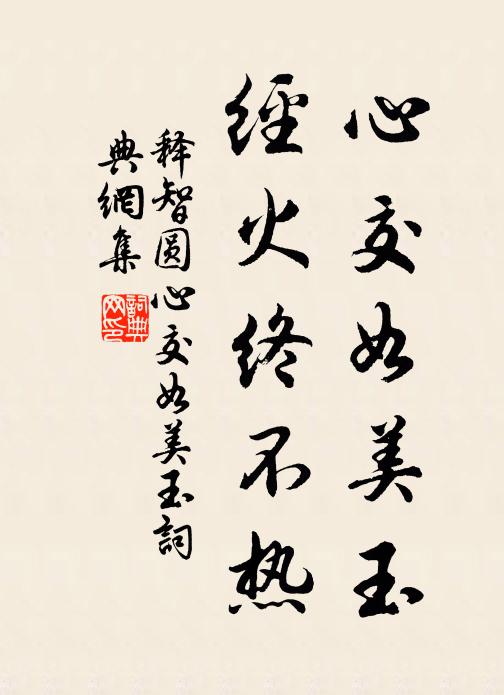 心交如美玉
經火终不热
释智圆心交如美玉詞
典網集
詞典网印